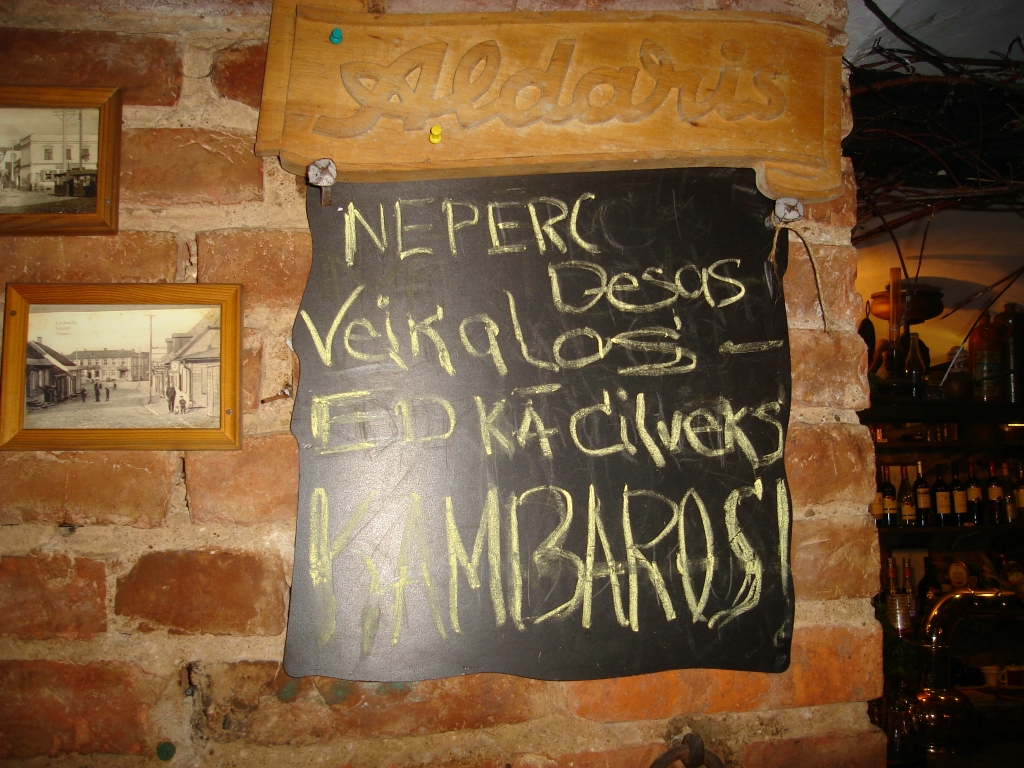 Aldaris
NEPĒRC
Desas
Veikalos -
ĒD KĀ Cilveks
KAMBAROS!